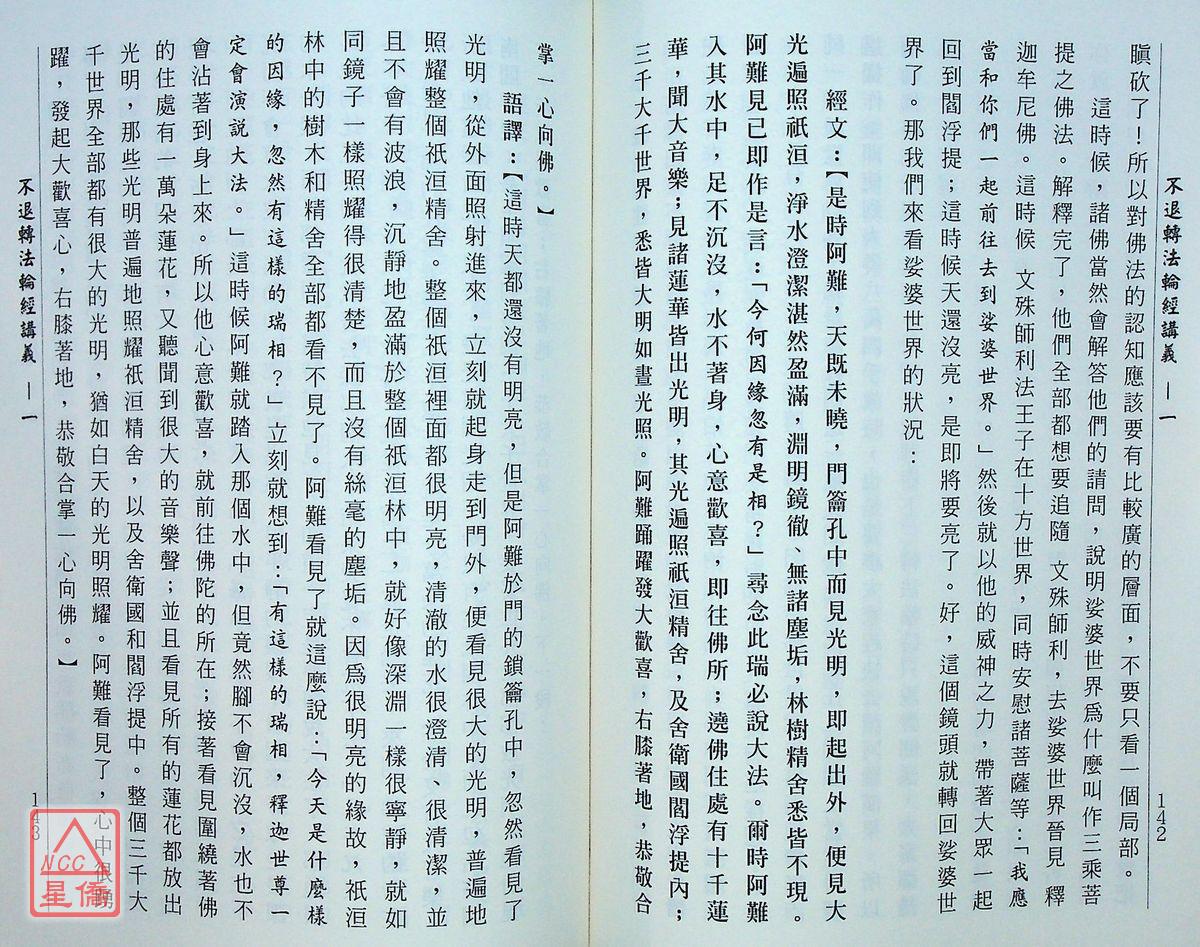 不退轉法輪經講義 — 一
142
瞋砍了！所以對佛法的認知應該要有比較廣的層面，不要只看一個局部。
這時候，諸佛當然會解答他們的請問，說明娑婆世界爲什麼叫作三乘菩
提之佛法。解釋完了，他們全部都想要追隨 文殊師利，去娑婆世界晉見 釋
迦牟尼佛。這時候 文殊師利法王子在十方世界，同時安慰諸菩薩等：「我應
當和你們一起前往去到娑婆世界。」然後就以他的威神之力，帶著大眾一起
回到閻浮提；這時候天還沒亮，是即將要亮了。好，這個鏡頭就轉回娑婆世
界了。那我們來看娑婆世界的狀況：
經文：【是時阿難，天既未曉，門籥孔中而見光明，即起出外，便見大
光遍照祇洹，淨水澄潔湛然盈滿，淵明鏡徹、無諸塵垢，林樹精舍悉皆不現。
阿難見已即作是言：「今何因緣忽有是相？」尋念此瑞必說大法。爾時阿難
入其水中，足不沉沒，水不著身，心意歡喜，即往佛所；遶佛住處有十千蓮
華，聞大音樂；見諸蓮華皆出光明，其光遍照祇洹精舍，及舍衛國閻浮提內；
三千大千世界，悉皆大明如晝光照。阿難踊躍發大歡喜，右膝著地，恭敬合
掌一心向佛。】
語譯：【這時天都還沒有明亮，但是阿難於門的鎖籥孔中，忽然看見了
光明，從外面照射進來，立刻就起身走到門外，便看見很大的光明，普遍地
照耀整個祇洹精舍。整個祇洹裡面都很明亮，清澈的水很澄清、很清潔，並
且不會有波浪，沉靜地盈滿於整個祇洹林中，就好像深淵一樣很寧靜，就如
同鏡子一樣照耀得很清楚，而且沒有絲毫的塵垢。因爲很明亮的緣故，祇洹
林中的樹木和精舍全部都看不見了。阿難看見了就這麼說：「今天是什麼樣
的因緣，忽然有這樣的瑞相？」立刻就想到：「有這樣的瑞相，釋迦世尊一
定會演說大法。」這時候阿難就踏入那個水中，但竟然腳不會沉沒，水也不
會沾著到身上來。所以他心意歡喜，就前往佛陀的所在；接著看見圍繞著佛
的住處有一萬朵蓮花，又聽聞到很大的音樂聲；並且看見所有的蓮花都放出
光明，那些光明普遍地照耀祇洹精舍，以及舍衛國和閻浮提中。整個三千大
千世界全部都有很大的光明，猶如白天的光明照耀。阿難看見了，心中很踴
躍，發起大歡喜心，右膝著地，恭敬合掌一心向佛。】
不退轉法輪經講義 — 一
143
NCC
星僑